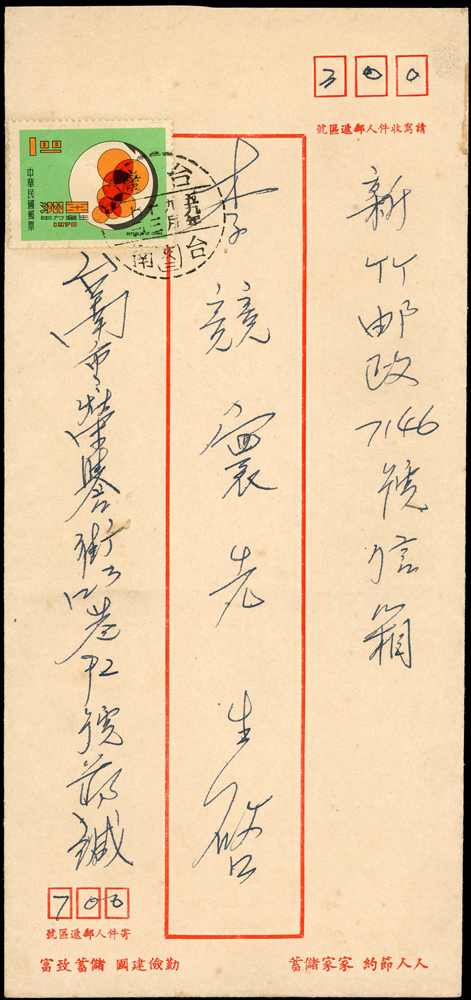 300
請寫收件人郵遞區號
新竹郵政7146號信箱
李競寰先生啓
1.00
中華民國郵票
1970
REPUBLIC OF CHINA
台南
五九年
台南市榮譽街
號
緘
700
寄件人郵遞區號
人人節約 家家儲蓄
勤儉建國 儲蓄致富